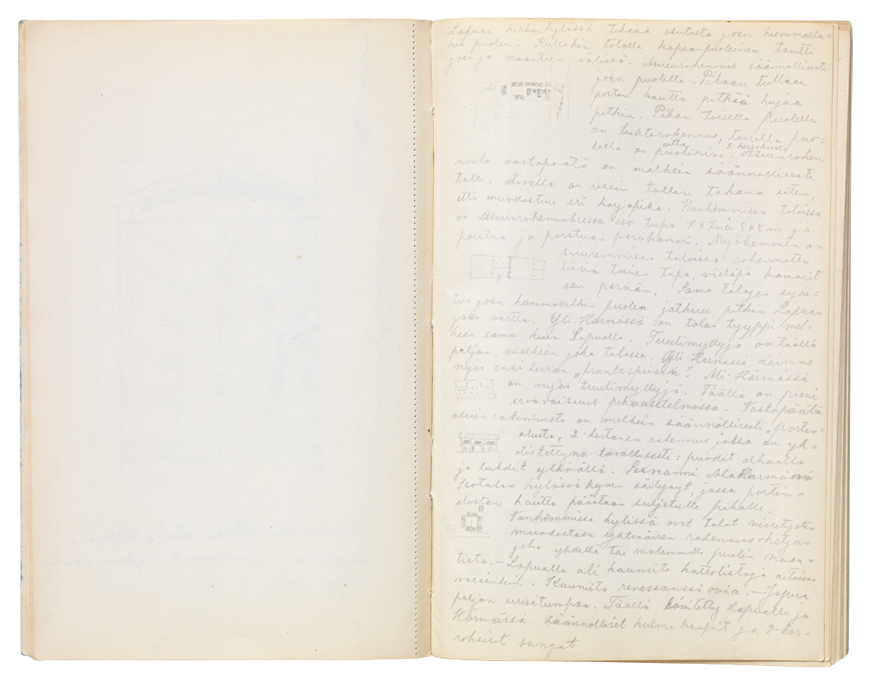 Lapuan kirkonkylässä tiheää asutusta joen kummalla-
kin puolen. Kullakin talolla kapeanpuoleinen tontti
joen ja maantien välissä. Asuinrakennus säännöllisesti
joen puolella. Pihaan tullaan
portin kautta pitkää kujaa
pitkin. Pihan toisella puolella
on luhtirakennus, toisella puo-
lella on puotirivi. Asuinraken
aitta 2-kerroksinen
joki
maantie
nusta vastapäätä on melkein säännöllisesti
talli. Navetta on usein tallin takana siten,
että muodostuu eri karjapiha. Vanhemmissa taloissa
on asuinrakennuksessa iso tupa 7 x 7 nä 8 x 8 m ja
porstua ja porstuan peräkamari. Myöhemmin on
suuremmissa taloissa rakennettu
lisiä toinen tupa, vieläpä kamarit
sen perään. Sama talojen syöi-
tus joen kummallekin puolen jatkuu pitkin Lapuan
joen vartta. Yli Härmässä on talon tyyppi mel-
kein sama kuin Lapualla. Tuulimyllyjä on täällä
paljon, melkein joka talossa. Yli-Härmässä näimme
myös ensi kerran „frantespiisin". Ali-Härmässä
on myös tuulimyllyjä. Täällä on pieni
eroavaisuus pihasuhtelmassa. Vastapäätä
asuinrakennusta on melkein säännöllisesti „portin-
alusta, 2-kertanen rakennus jossa on yh-
distettynä tavallisesti: puodit alhaalla
ja luhdit ylhäällä. Alahärmässä
kylässä hyvin säilynyt, jossa portin-
alustan kautta päästään suljetulle pihalle.
Vanhemmissa kylissä ovat talot vieretysten
muodostaen yhtenäisen rakennus-ketjun
joko yhdellä tai molemmilla puolin maan-
tietä. – Lapualla oli kauniita kattolistoja aitoissa
varsinkin. Kauniita renessanssi ovia. –
paljon uusitumpaa. Täällä Lapualla ja
Härmässä säännölliset ja 2-ker-
roksiset sängyt